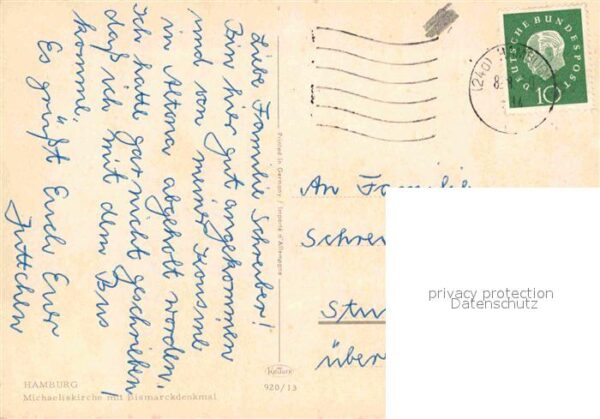 Liebe Familie Schreiber!
Bin hier gut angekommen
und von meiner Kousine
in Altona abgeholt worden.
Ich hatte gar nicht geschrieben,
daß ich mit dem Bus
komme.
Es grüßt Euch Euer
Juttchen
HAMBURG
Michaeliskirche mit Bismarckdenkmal
Printed in Germany / Importé d'Allemagne
Krüger
920/13
DEUTSCHE BUNDESPOST
10
(24a)
An Familie
Schrei
Stu
über
privacy protection
Datenschutz